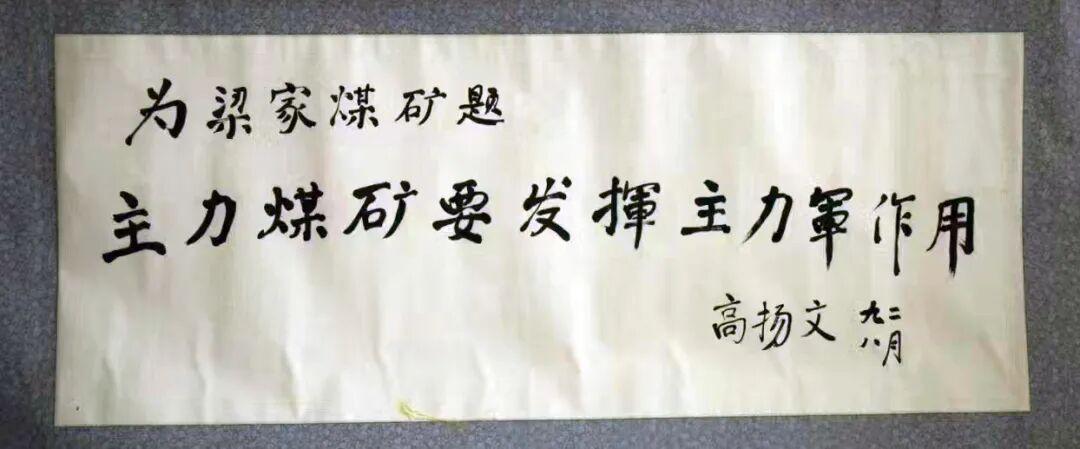 为梁家煤矿题
主力煤矿要发揮主力軍作用
高扬文 九二
八月